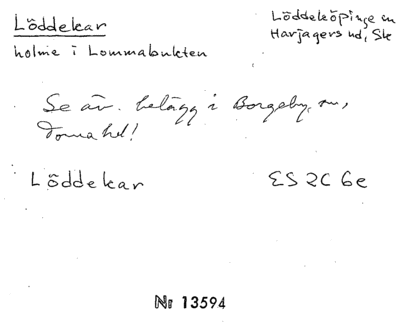 Löddekar
Löddeköpinge sn
Harjagers hd, Sk
holme i Lommabukten
Se äv. belägg i Borgeby sn,
Torna hd!
Löddekar ES 2C 6e
Nr 13594